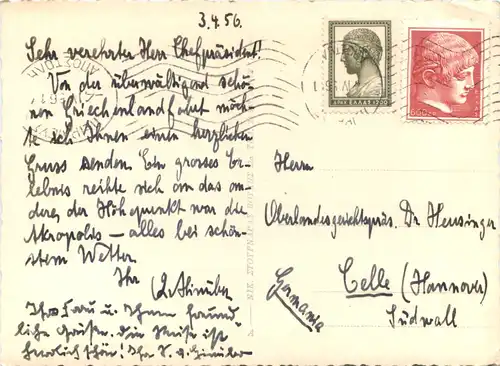 3.4.56.
Sehr verehrter Herr Chefpräsident!
Von der überwältigend schö-
nen Griechenlandfahrt möch-
te ich Ihnen einen herzlichen
Gruss senden. Ein grosses Er-
lebnis reihte sich an das an-
dere, der Höhepunkt war die
Akropolis – alles bei schön-
stem Wetter.
Ihr
Ihrer Frau u. Ihnen freund-
liche Grüße. Die Reise ist
herrlich schön! Ihr
ΕΛΛΑΣ
Herrn
Oberlandesgerichtspräs. Dr. Heusinger
Celle (Hannover)
Südwall
Germania